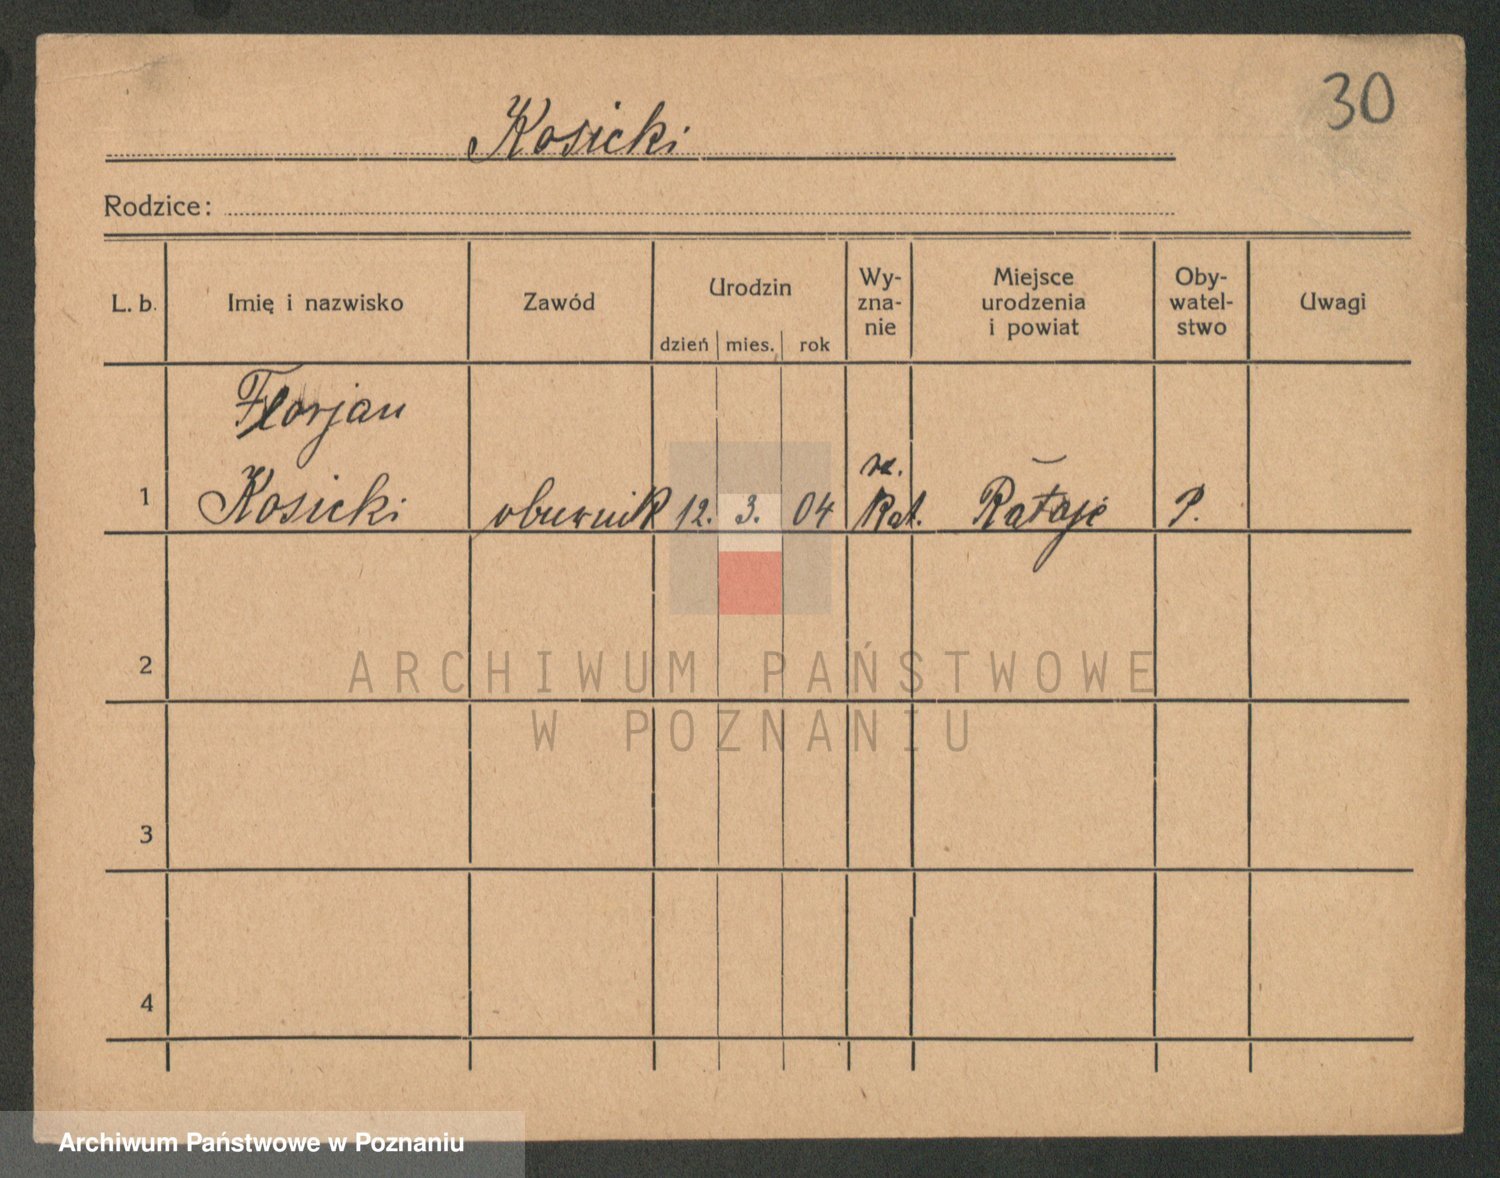 30
Kosicki
Rodzice:
L. b. Imię i nazwisko Zawód Urodzin dzień mies. rok Wy-zna-nie Miejsce urodzenia i powiat Oby-watel-stwo Uwagi
Florjan
rz.
1 Kosicki 12. 3. 04 Kat. Rataje P.
2
ARCHIWUM PAŃSTWOWE
W POZNANIU
3
4
Archiwum Państwowe w Poznaniu